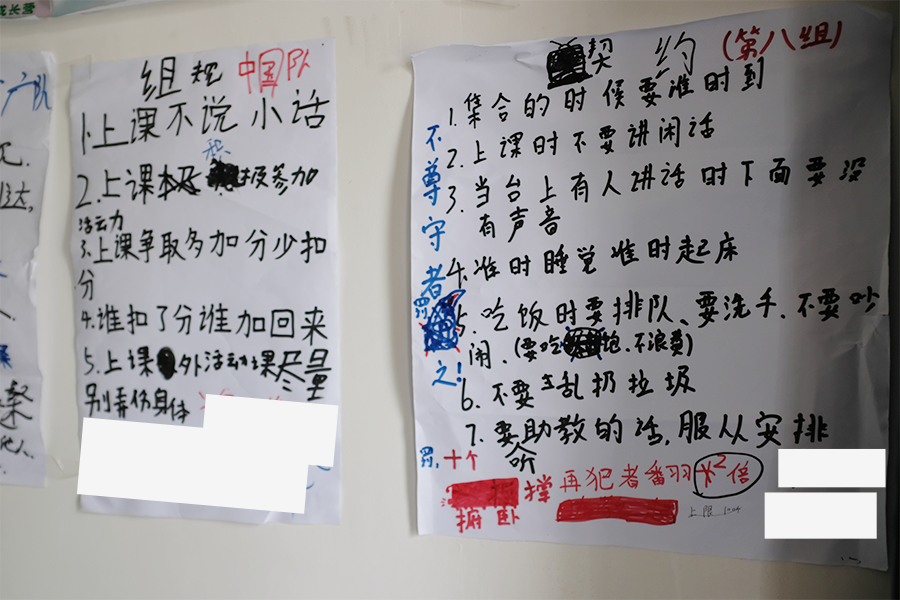 成长营
广队
组规 中国队
1.上课不说小话
积
2.上课极参加
活动力
3.上课争取多加分少扣
分
4.谁扣了分谁加回来
5.上课外活动课尽量
别弄伤身体
契约(第八组)
1.集合的时候要准时到
2.上课时不要讲闲话
3.当台上有人讲话时下面要没
有声音
4.准时睡觉准时起床
5.吃饭时要排队、要洗手、不要吵
闹、(要吃饱、不浪费)
6.不要乱扔拉圾
7.要助教的话,服从安排
听
不尊守者罚之!
罚,十个
俯卧撑 再犯者番羽x2倍
上限